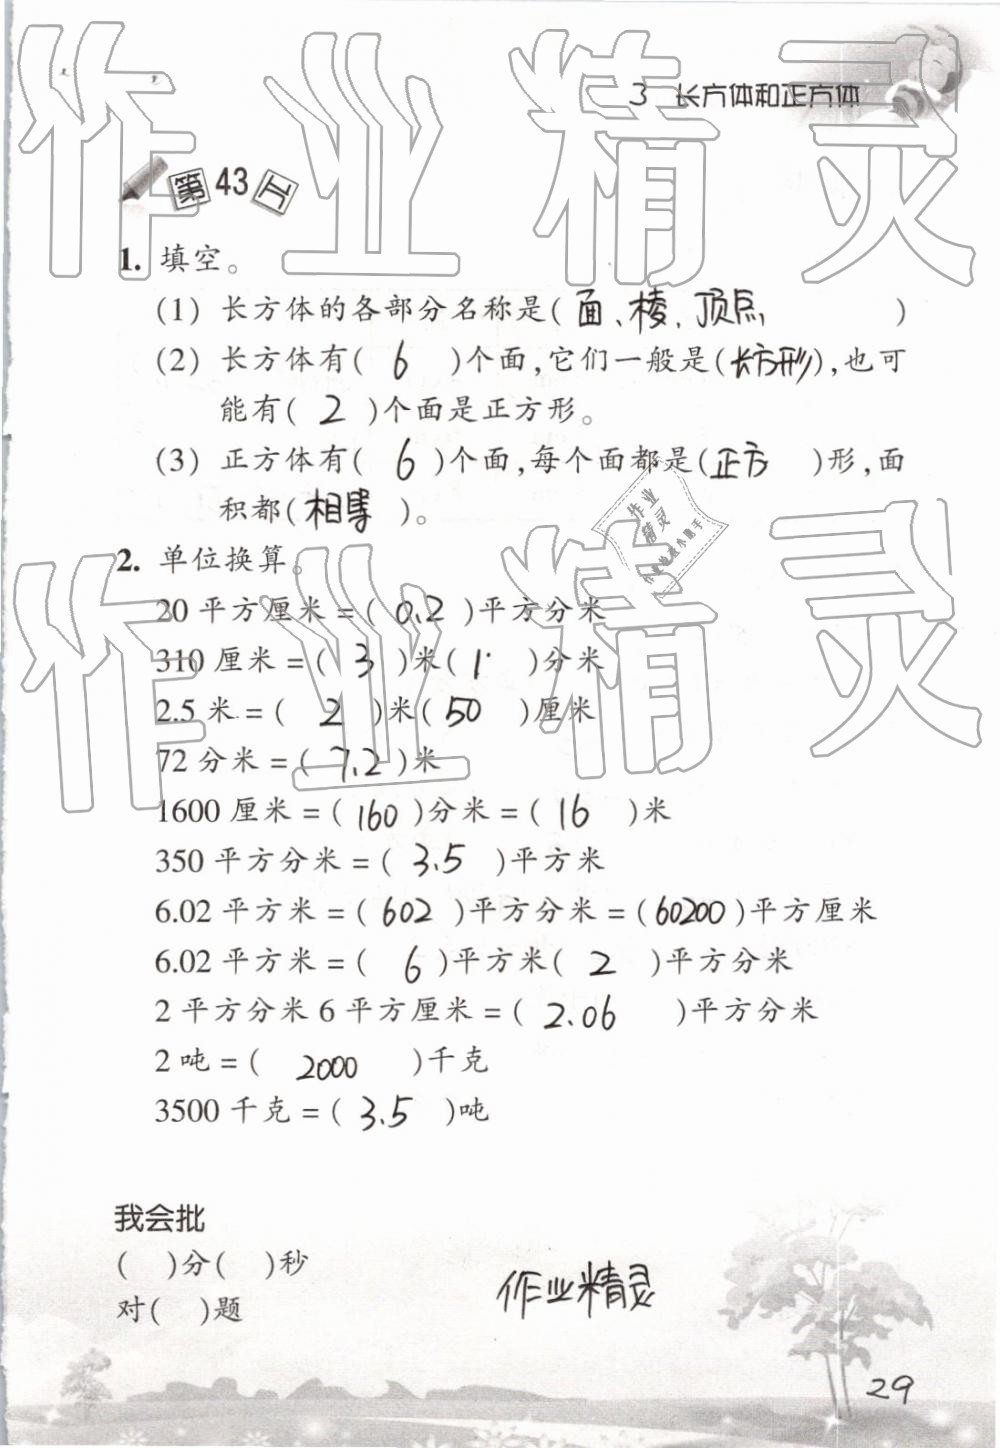 3 长方体和正方体
第43工
1. 填空。
(1) 长方体的各部分名称是(面、棱、顶点)
(2) 长方体有( 6 )个面,它们一般是(长方形),也可
能有( 2 )个面是正方形。
(3) 正方体有( 6 )个面,每个面都是(正方 )形,面
积都(相等 )。
2. 单位换算。
20平方厘米=( 0.2 )平方分米
310厘米=( 3 )米( 1 )分米
2.5米=( 2 )米( 50 )厘米
72分米=( 7.2 )米
1600厘米=( 160 )分米=( 16 )米
350平方分米=( 3.5 )平方米
6.02平方米=( 602 )平方分米=(60200)平方厘米
6.02平方米=( 6 )平方米( 2 )平方分米
2平方分米6平方厘米=( 2.06 )平方分米
2吨=( 2000 )千克
3500千克=( 3.5 )吨
我会批
( )分( )秒
对( )题
作业精灵
29
作业精灵
作业精灵
作业
精灵